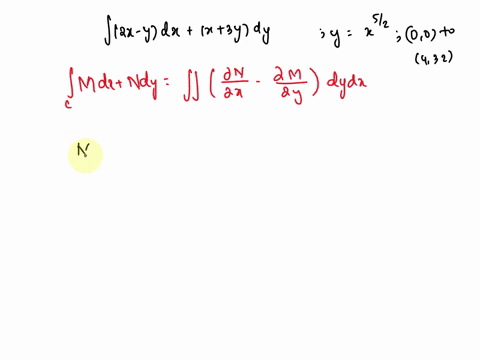 ∫(2x-y) dx + (x+3y) dy ; y = x^{5/2} ; (0,0) to (4,32)
∫_c Mdx + Ndy = ∬ ( ∂N/∂x - ∂M/∂y ) dydx
N